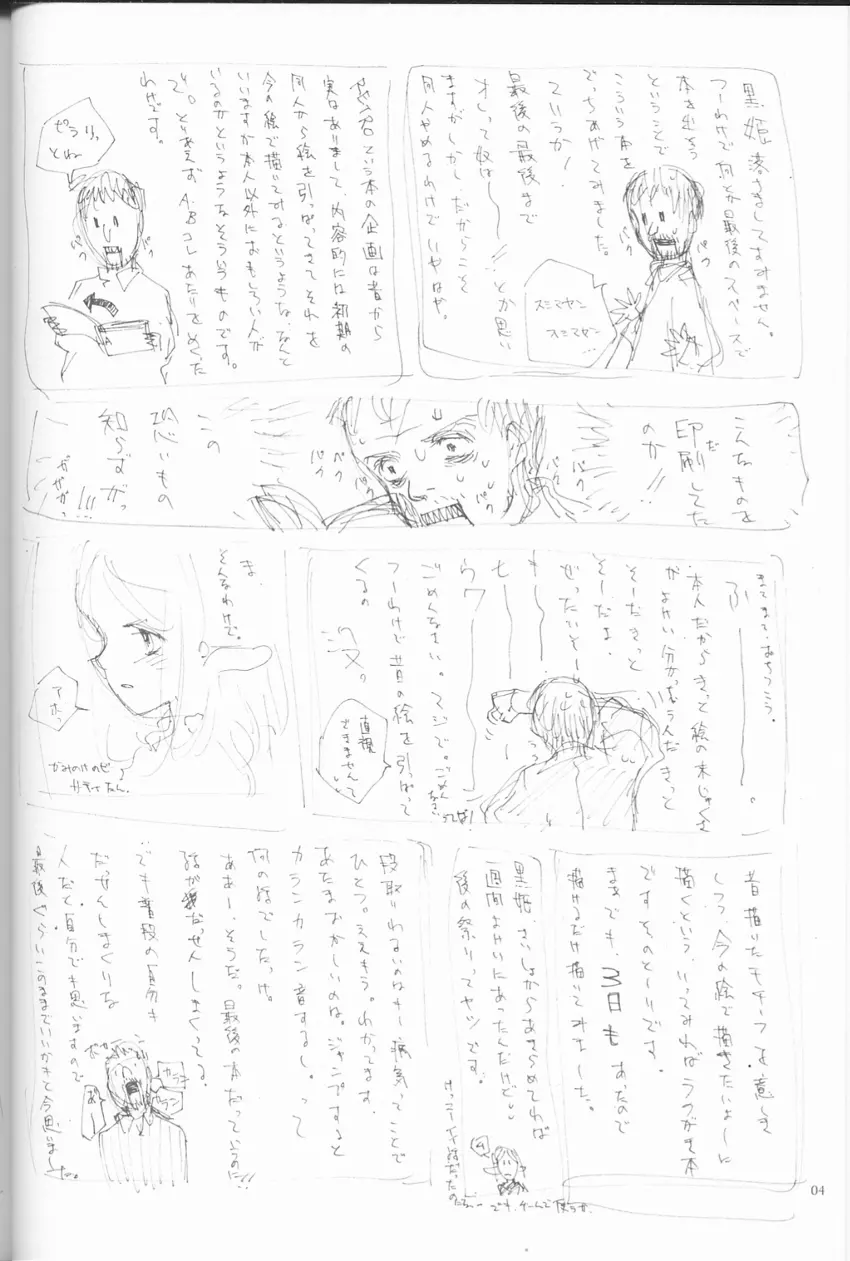 黒姫落ちましてすみません。
つーわけで何とか最後のスペースで
本を出そう
ということで
こういう本を
でっちあげてみました。
ていうか！
最後の最後まで
オレって奴は──!!とか思い
ますがしかし、だからこそ
同人やめるわけで いやはや。
スミマセン
スミマセン
パク
パク
という本の企画は昔から
実はありまして、内容的には初期の
同人から絵を引っぱってきてそれを
今の絵で描いてみるというような、なんと
いいますか本人以外におもしろい人が
いるのかというようなそういうものです。
で。とりあえず A.Bコレあたりをめくった
わけです。
ピラリっ
とね
パク
パク
A
こんなものを
印刷してた
のか!!
だ
パク
パク
パク
パク
この
恐いもの
知らずがっ
!!!
まてまて、おちつこう。
ふ───────。
本人だからきっと絵の未じゅくさ
がよけい分かっちゃうんだ きっと
そーだきっと
そーだよ、
ぜったいそー
ごめんなさい。マジで。ごめんなさい
つーわけで昔の絵を引っぱって
くるの
没っ
直視
できませんて
ま、
そんなわけで。
アホっ
昔描いたモチーフを意しき
しつつ、今の絵で描きたいよーに
描くという、いってみればらくがき本
ですそのとーりです。
まあでも、3日もあったので
描けるだけ描いてみました。
黒姫、さいしょからあきらめてれば
一週間よけいにあったんだけど。
後の祭りってヤツです。
段取りわるいのはもー病気ってことで
ひとつ。ええもう。わかってます。
あたまおかしいのは。ジャンプすると
カランカラン音するし。って
何の話でしたっけ。
ああー、そうだ。最後の本だっていうのに!!
話がだっせんしまくってる。
でも普段の自分も
だっせんしまくりな
人だと自分でも思いますので
最後ぐらいこのままでいいかもと今思いました。
カラン
カラン
あ
04